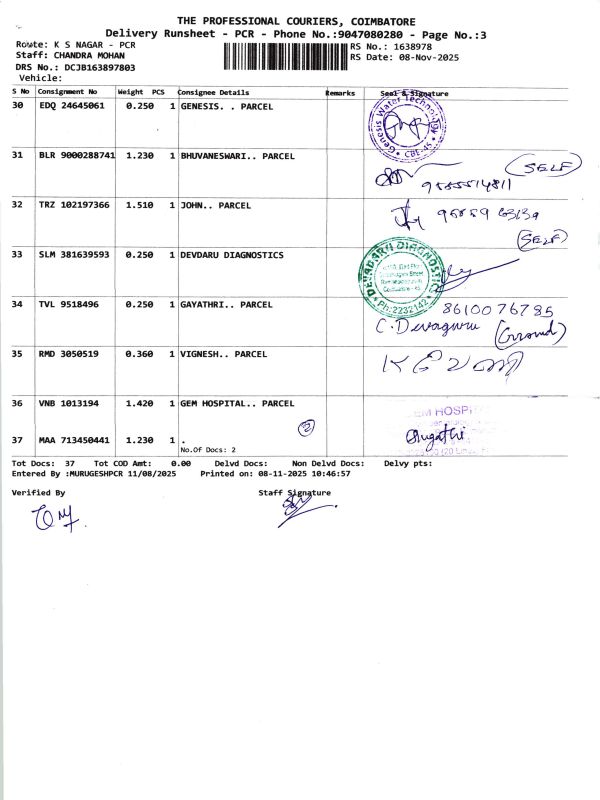 THE PROFESSIONAL COURIERS, COIMBATORE
Delivery Runsheet - PCR - Phone No.:9047080280 - Page No.:3
Route: K S NAGAR - PCR
RS No.: 1638978
Staff: CHANDRA MOHAN
RS Date: 08-Nov-2025
DRS No.: DCJB163897803
Vehicle:
S No Consignment No Weight PCS Consignee Details Remarks Seal & Signature
30 EDQ 24645061 0.250 1 GENESIS. . PARCEL
Genesis Water Technology
CBE-45
31 BLR 9000288741 1.230 1 BHUVANESWARI.. PARCEL
(SELF)
32 TRZ 102197366 1.510 1 JOHN.. PARCEL
(SELF)
33 SLM 381639593 0.250 1 DEVDARU DIAGNOSTICS
DEVADARU DIAGNOSTICS
Ph:2232142
34 TVL 9518496 0.250 1 GAYATHRI.. PARCEL
8610076785
C. Devaguru (Ground)
35 RMD 3050519 0.360 1 VIGNESH.. PARCEL
36 VNB 1013194 1.420 1 GEM HOSPITAL.. PARCEL
2
37 MAA 713450441 1.230 1 .
No.Of Docs: 2
Tot Docs: 37 Tot COD Amt: 0.00 Delvd Docs: Non Delvd Docs: Delvy pts:
Entered By :MURUGESHPCR 11/08/2025 Printed on: 08-11-2025 10:46:57
Verified By
Staff Signature